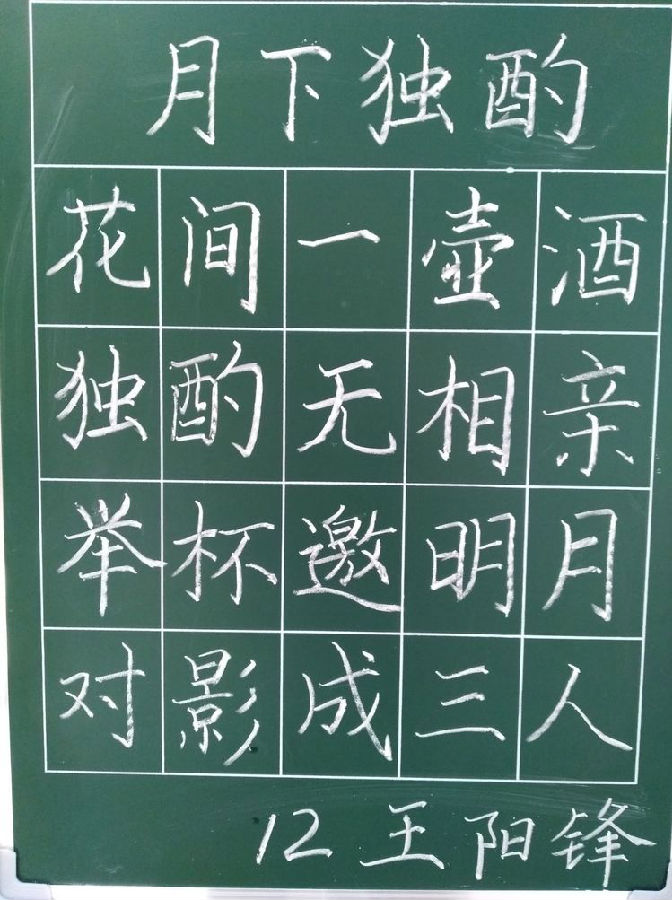 月下独酌
花间一壶酒
独酌无相亲
举杯邀明月
对影成三人
12王阳锋